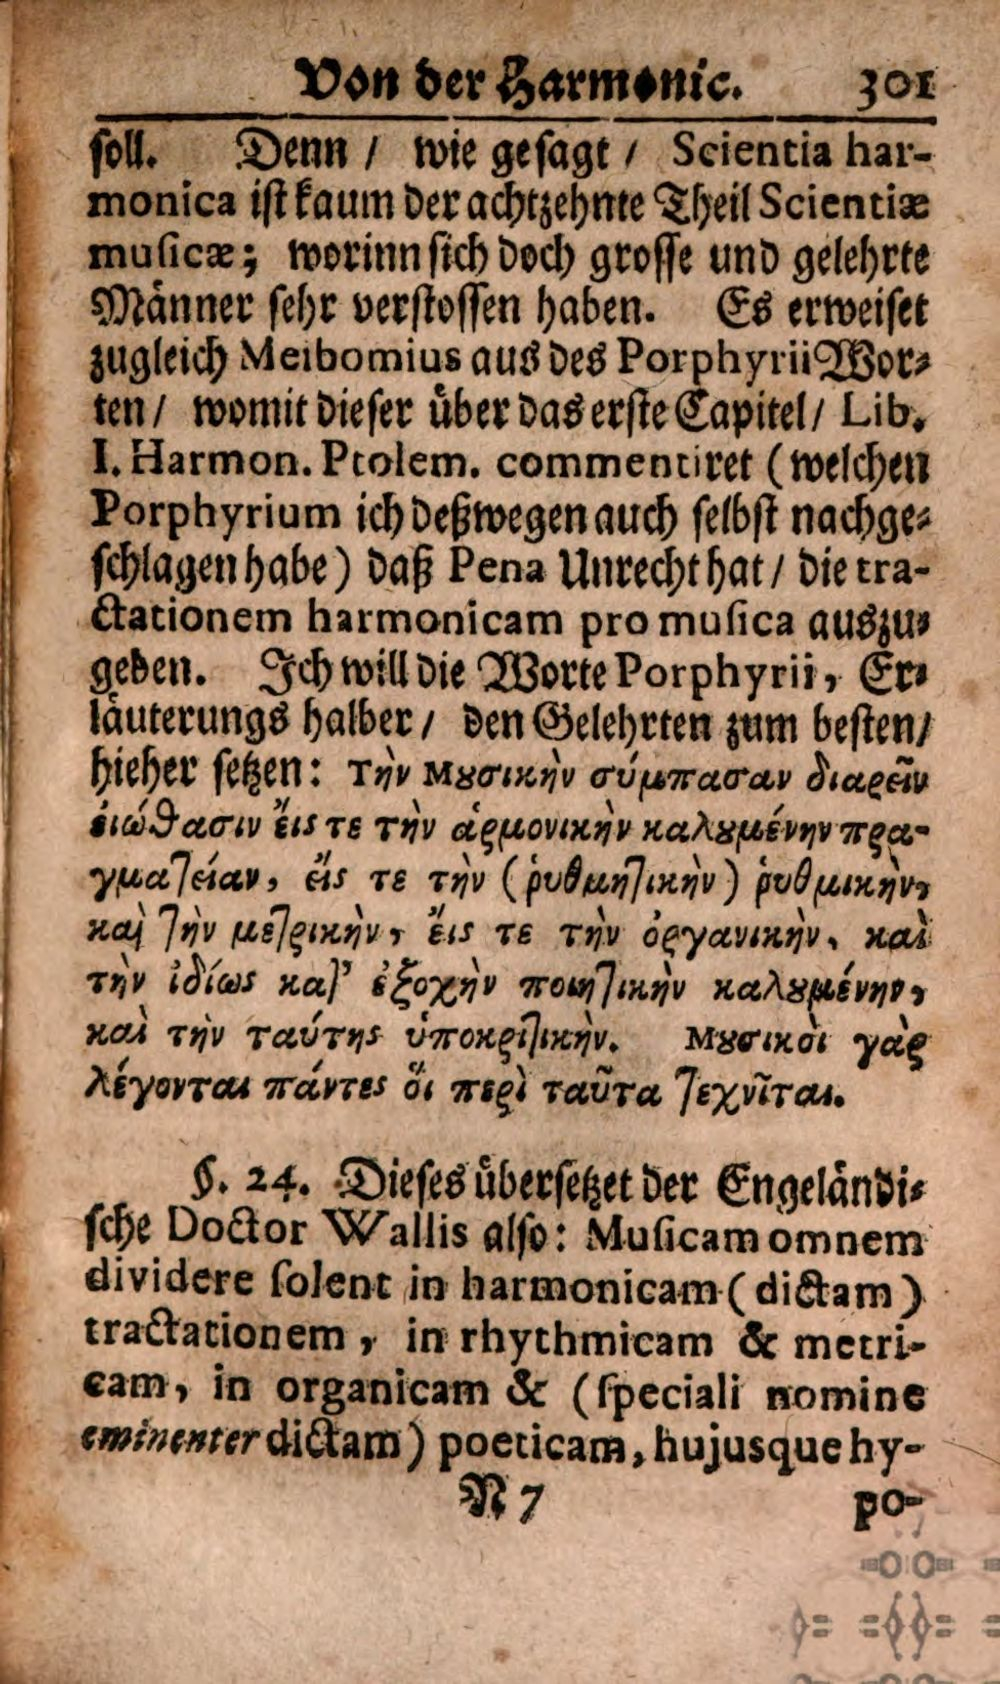 Von der Harmonic. 301
soll. Denn / wie gesagt / Scientia har-
monica ist kaum der achtzehnte Theil Scientiæ
musicæ; worinn sich doch grosse und gelehrte
Männer sehr verstossen haben. Es erweiset
zugleich Meibomius aus des Porphyrii Wor-
ten / womit dieser über das erste Capitel / Lib.
I. Harmon. Ptolem. commentiret (welchen
Porphyrium ich deßwegen auch selbst nachge-
schlagen habe) daß Pena Unrecht hat / die tra-
ctationem harmonicam pro musica auszu-
geben. Ich will die Worte Porphyrii, Er-
läuterungs halber / den Gelehrten zum besten /
hieher setzen: Τὴν Μȣσικὴν σύμπασαν διαρεῖν
ἐιώθασιν ἔις τε τὴν ἁρμονικὴν καλȣμένην πρα-
γματείαν, ἔις τε τὴν (ῥυθμητικὴν) ῥυθμικὴν,
καὶ τὴν μετρικὴν, ἔις τε τὴν ὀργανικὴν, καὶ
τὴν ἰδίως κατ' ἐξοχὴν ποιητικὴν καλȣμένην,
καὶ τὴν ταύτης ὑποκριτικὴν. Μȣσικὸι γὰρ
λέγονται πάντες ὅι περὶ ταῦτα τεχνῖται.
§. 24. Dieses übersetzet der Engeländi-
sche Doctor Wallis also: Musicam omnem
dividere solent in harmonicam (dictam)
tractationem, in rhythmicam & metri-
cam, in organicam & (speciali nomine
eminenter dictam) poeticam, hujusque hy-
N 7 po-